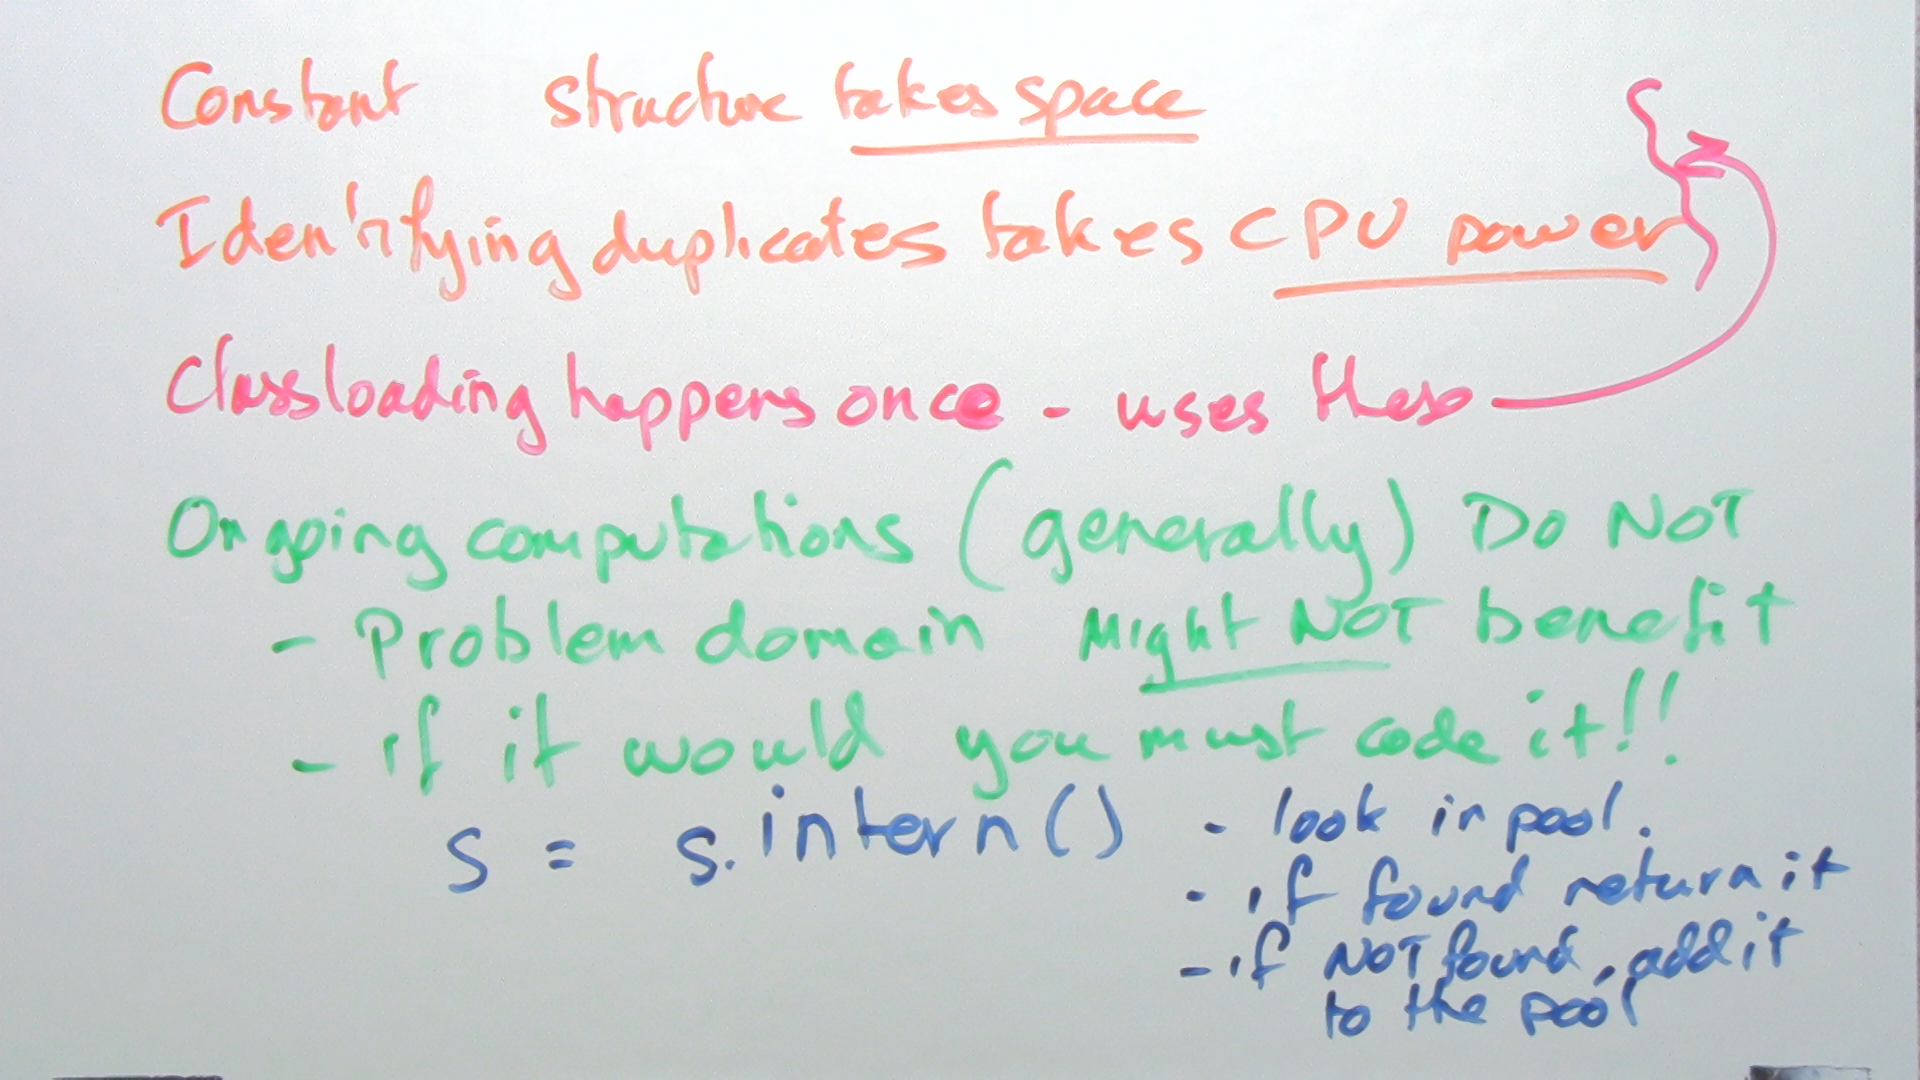 Constant structure takes space
Identifying duplicates takes CPU power
Classloading happens once - uses these
Ongoing computations (generally) DO NOT
- Problem domain Might NOT benefit
- if it would you must code it!!
s = s.intern() - look in pool.
- if found return it
- if NOT found, add it
to the pool